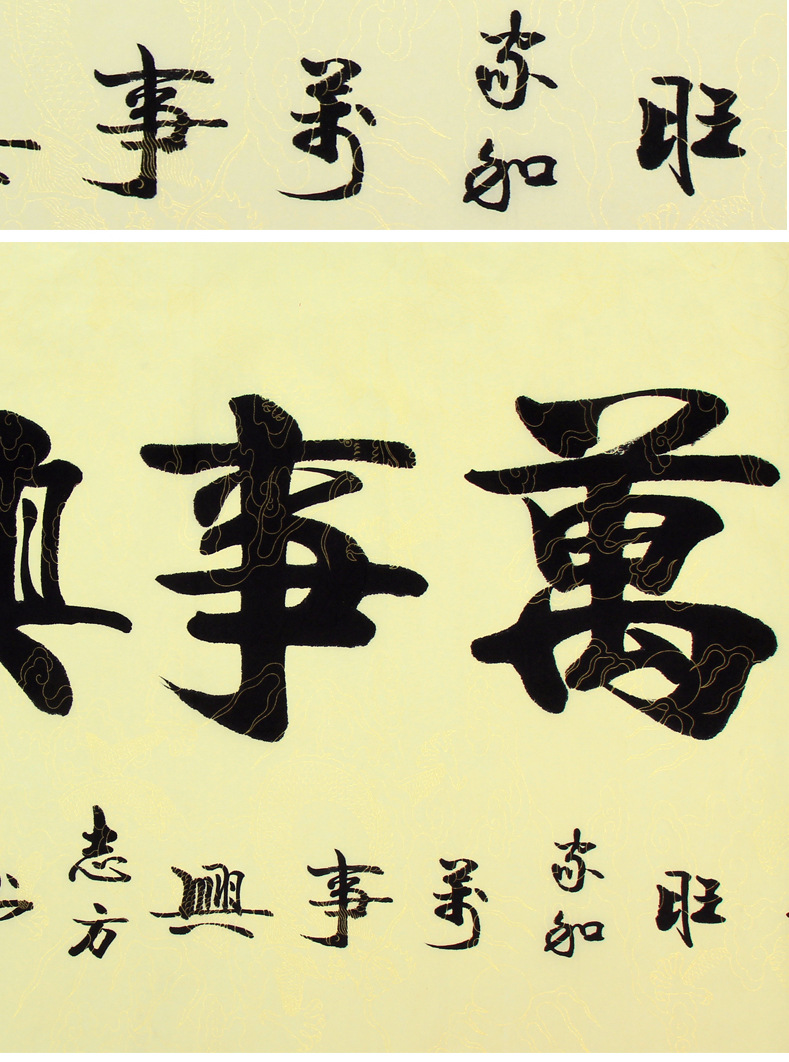 旺家和萬事
萬事興
旺家和萬事興志方